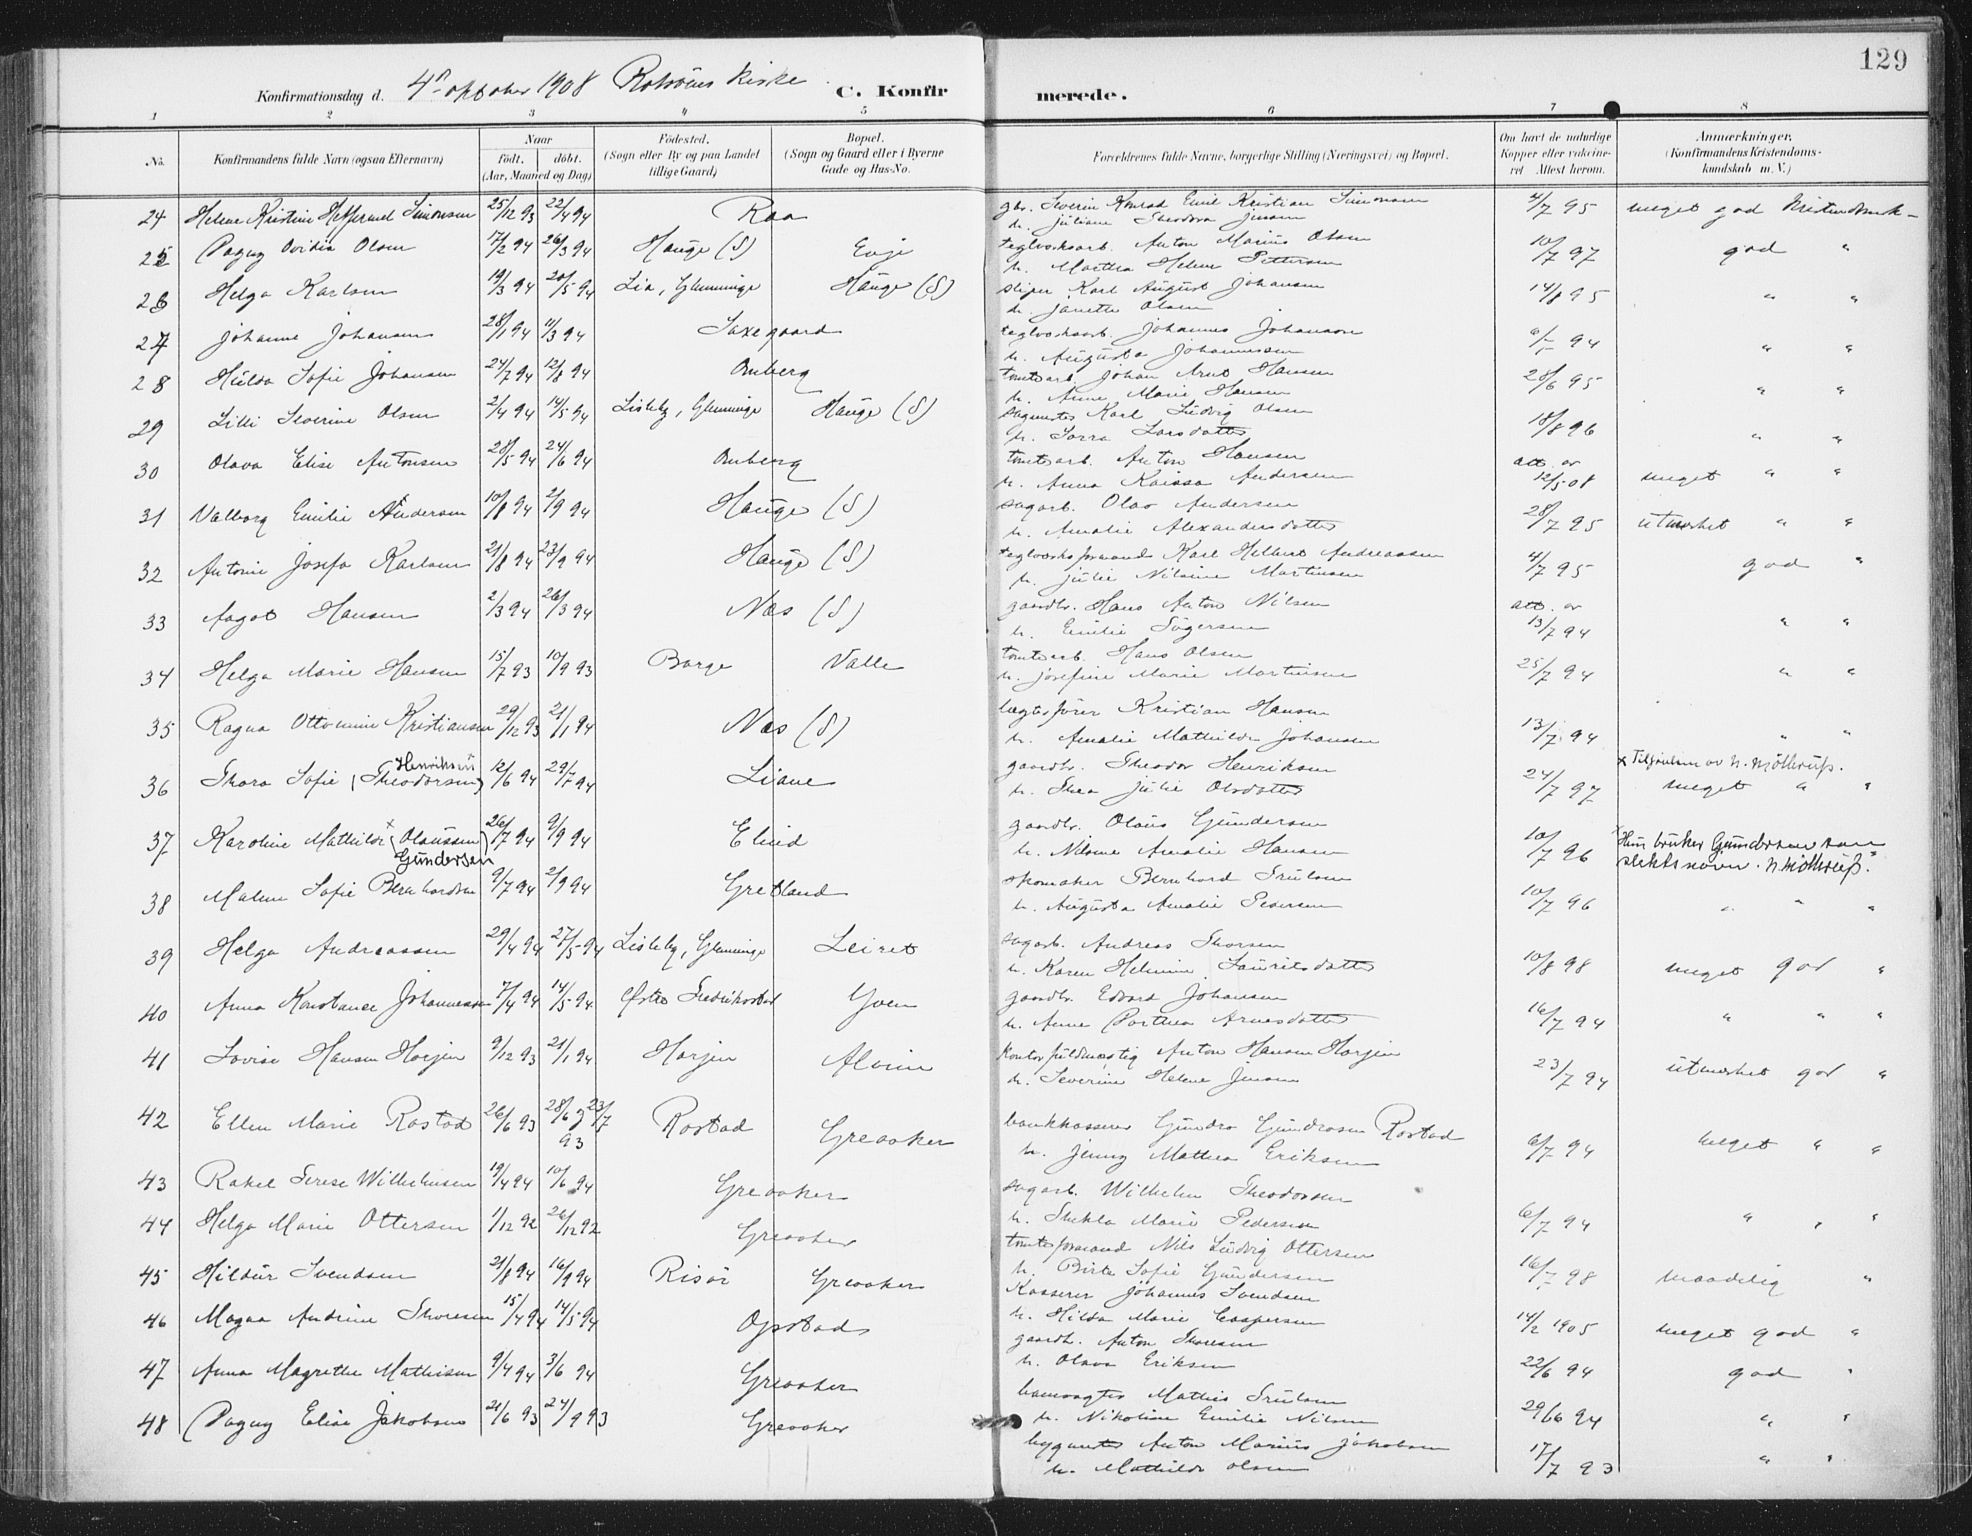 129
Konfirmationsdag d. 4de oktober 1908 Rolvsöens kirke C. Konfirmerede.
1 2 3 4 5 6 7 8
No. Konfirmandens fulde Navn (ogsaa Efternavn) Naar födt. döbt. (Aar, Maaned og Dag) Födested. (Sogn eller By og paa Landet tillige Gaard) Bopæl. (Sogn og Gaard eller i Byerne Gade og Hus-No. Forældrenes fulde Navne, borgerlige Stilling (Næringsvei) og Bopæl. Om havt de naturlige Kopper eller vakcineret Attest herom. Anmærkninger. (Konfirmandens Kristendomskundskab m. V.)
24 Helene Kristine Simonsen 25/12 93 22/4 94 Raa gbr. Severin Konrad Emil Kristian Simonsen 4/7 95 meget god Kristendomsk-
h. Juliane Theodora Jensen
25 Dagny Ovidia Olsen 17/2 94 26/3 94 Hauge (S) Evje teglverksarb. Anton Marius Olsen 10/7 97 god "
h. Marthea Helene Pettersen
26 Helga Karlsen 19/3 94 20/5 94 Lia, Glemminge Hauge (S) sliper Karl August Johansen 14/8 95 " "
h. Janette Olsen
27 Johanne Johansen 28/1 94 11/3 94 Saxegaard teglverksarb. Johannes Johansen 94 " "
h. Augusta Johannessen
28 Hulda Sofie Johansen 24/7 94 12/8 94 Omberg tomtearb. Johan Arnt Hansen 28/6 95 " "
h. Anne Marie Hansen
29 Lilli Severine Olsen 2/4 94 14/5 94 Lisleby, Glemminge Hauge (S) sagmester Karl Ludvig Olsen 18/8 96 " "
h. Larsdatter
30 Olava Elise Antonsen 28/5 94 24/6 94 Omberg tomtearb. Anton Hansen att. av 12/5 08 meget " "
h. Anna Andersen
31 Valborg Emilie Andersen 10/8 94 2/9 94 Hauge (S) sagarb. Olav Andersen 28/7 95 utmerket " "
h. Amalie Alexandersdatter
32 Antonie Josefa Karlsen 21/8 94 23/9 94 Hauge (S) teglverksformand Karl Helbert Andreassen 4/7 95 god "
h. Julie Nilsine Martinsen
33 Aagot Hansen 2/3 94 26/3 94 Næs (S) gaardbr. Hans Anton Nilsen att. av 13/7 94 " "
h. Emilie
34 Helga Marie Hansen 15/7 93 10/9 93 Borge Valle tomtearb. Hans Olsen 25/7 94 " "
h. Josefine Marie Martinsen
35 Ragna Ottomine Kristiansen 29/12 93 21/1 94 Næs (S) lægterfører Kristian Hansen 13/7 94 " "
h. Amalie Mathilde Johansen
36 Thora Sofie (Theodorsen) Henriksen x 12/6 94 29/7 94 Liane gaardbr. Theodor Henriksen 24/7 97 x Tilføielsen av N. Møllerup. meget " "
h. Thea Julie Olsdatter
37 Karoline Mathilde x (Olaussen) Gundersen 26/7 94 9/9 94 Elind gaardbr. Olaus Gundersen 10/7 96 x Hun bruker Gundersen som slektsnavn. N. Møllerup.
h. Nilsine Amalie Hansen
38 Malene Sofie Bernhardsen 9/7 94 2/9 94 Gretland skomaker Bernhard Trulsen 10/7 96 " " "
h. Augusta Amalie Pedersen
39 Helga Andreassen 29/4 94 27/5 94 Lisleby, Glemminge Leiret sagarb. Andreas Thorsen 10/8 98 meget god "
h. Karen Helmine Lauritsdatter
40 Anna Konstance Johannessen 7/4 94 14/5 94 Østre Fredrikstad Yven gaardbr. Edvard Johansen 16/7 94 " " "
h. Anne Dorthea Arnesdatter
41 Lovise Hansen Horgen 9/12 93 21/1 94 Horgen Alvim Kontorfuldmægtig Anton Hansen Horgen 23/7 94 utmerket god "
h. Severine Helene Jensen
42 Ellen Marie Rostad 26/6 93 28/6 23/7 93 Rostad Greaaker bankkasserer Gundro Gundrosen Rostad 6/7 94 meget " "
h. Jenny Mathea Eriksen
43 Rakel Terese Wilhelmsen 19/4 94 10/6 94 Greaaker sagarb. Wilhelm Theodorsen 6/7 94 " " "
h. Thekla Marie Pedersen
44 Helga Marie Ottersen 1/12 92 26/12 92 Greaaker tomteformand Nils Ludvig Ottersen 16/7 98 maadelig "
h. Birte Sofie Gundersen
45 Hildur Svendsen 21/8 94 16/9 94 Risør Greaaker Kasserer Johannes Svendsen 14/2 1905 meget god "
h. Hilda Marie Caspersen
46 Magna Andrine Thoresen 15/4 94 14/5 94 Opstad gaardb. Anton Thoresen 22/6 94 god "
h. Olava Eriksen
47 Anna Magrethe Mathisen 9/4 94 3/6 94 Greaaker banevogter Mathis Trulsen 29/6 94 " "
h. Nikoline Emilie Nilsen
48 Dagny Elise Jakobsen 21/6 93 24/9 93 Greaaker bygmester Anton Marius Jakobsen 17/7 93 " "
h. Mathilde Olsen